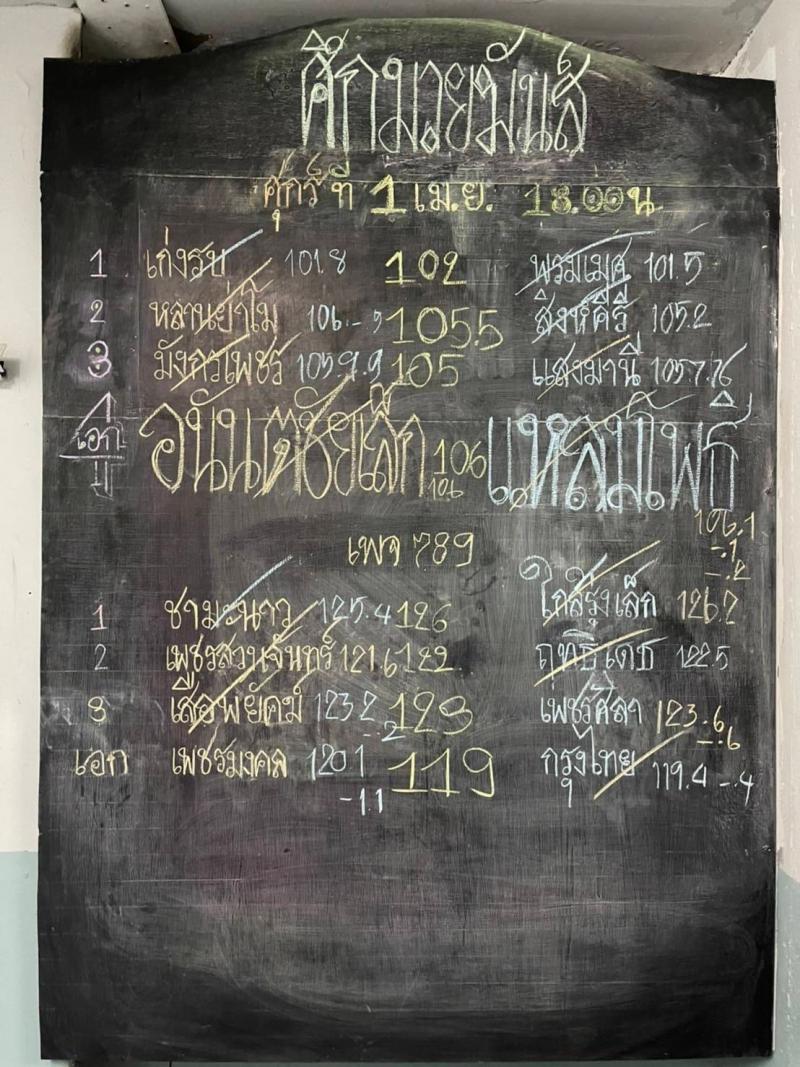 ศึกมวยมันส์
ศุกร์ ที่ 1 เม.ย. 18.00 น
1 เก่งรบ 101.8 102 พรมเมศ 101.5
2 หลานย่าโม 105.5 สิงห์คีรี 105.2
3 มังกรเพชร 105 แสงมานี
เอก อนันตชัยเล็ก 106 แหลมโพธิ์
106.1
-.1
-.2
เพจ 789
1 ชามะนาว 125.4 126 ใกล้รุ่งเล็ก 126.2
2 เพชรสวนจันทร์ 121.6 122 ฤทธิเดช 122.5
3 เสือพยัคฆ์ 123.2 -.2 123 เพชรศิลา 123.6 -.6
เอก เพชรมงคล 120.1 119 กรุงไทย 119.4 -.4
-1.1